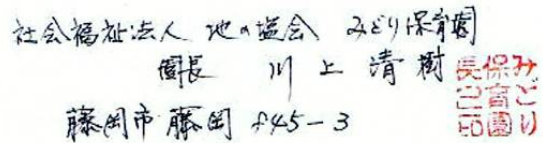 社会福祉法人 地の塩会 みどり保育園
園長 川上清樹
藤岡市藤岡845-3
みどり保育園長之印